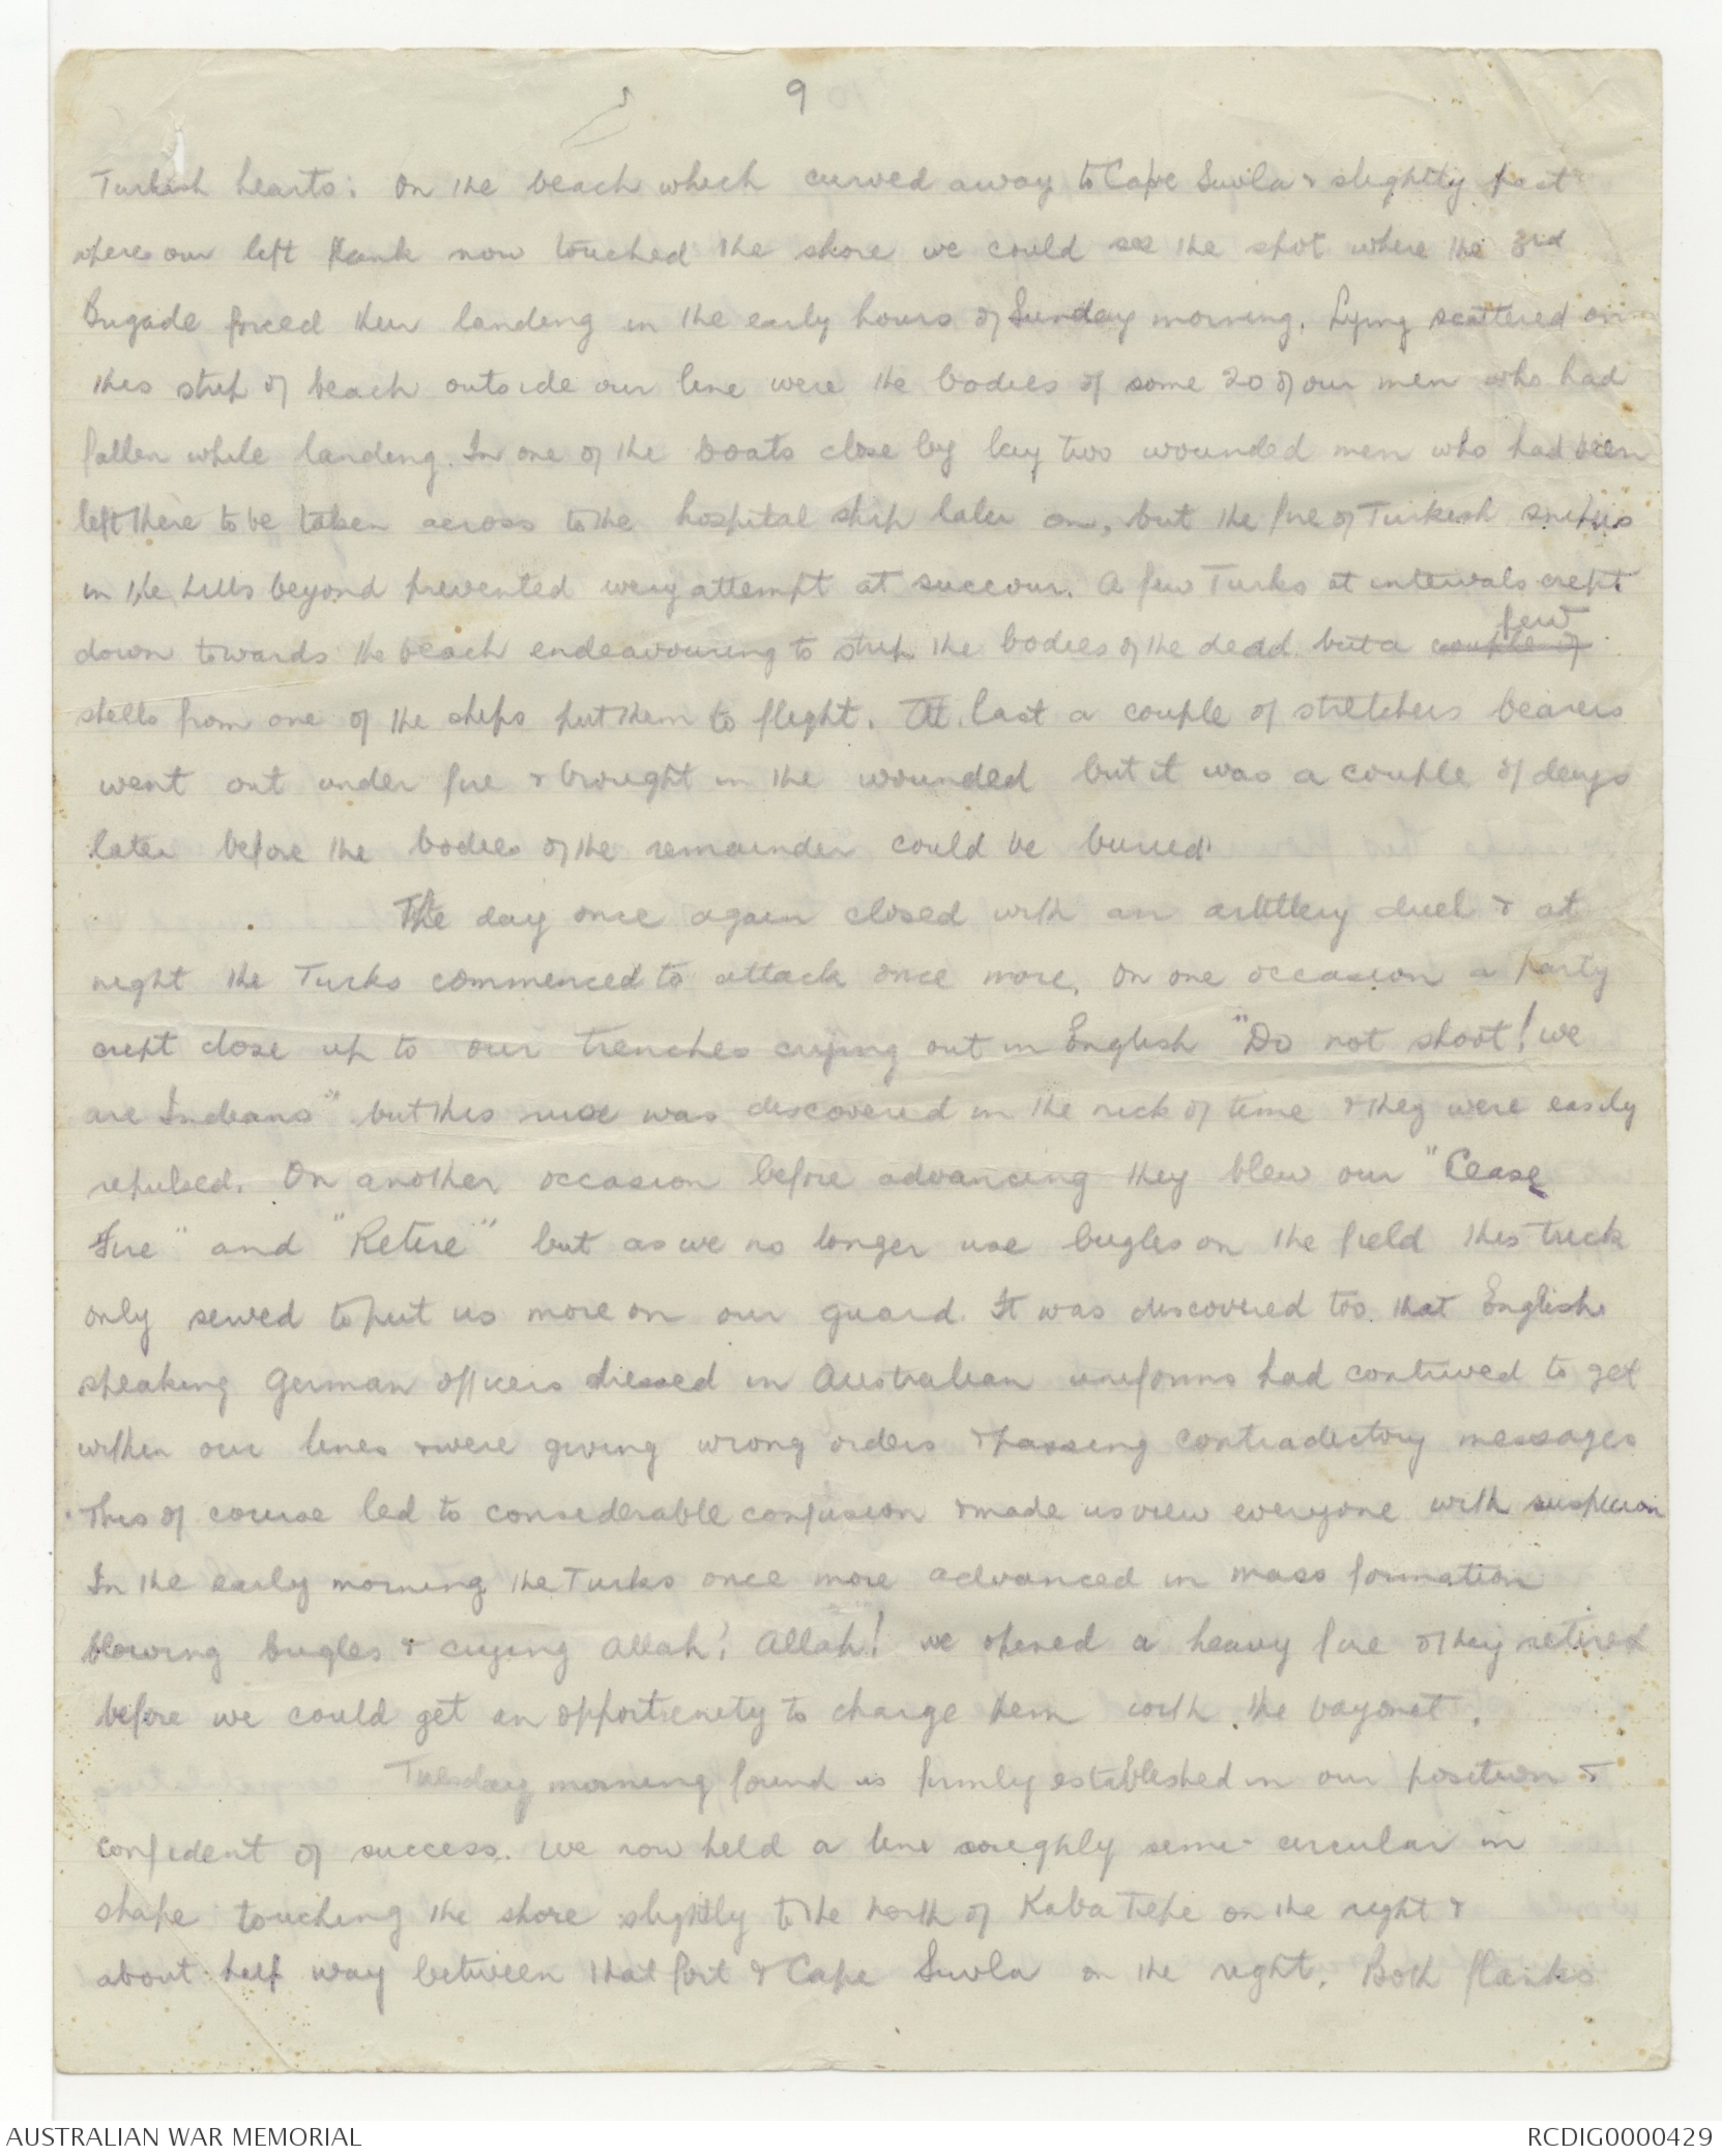 9
Turkish hearts. On the beach which curved away to Cape Suvla & slightly past
where our left flank now touched the shore we could see the spot where the 3rd
Brigade forced their landing in the early hours of Sunday morning. Lying scattered on
this strip of beach outside our line were the bodies of some 20 of our men who had
fallen while landing. In one of the boats close by lay two wounded men who had been
left there to be taken across to the hospital ship later on, but the fire of Turkish snipers
in the hills beyond prevented every attempt at succour. A few Turks at intervals crept
down towards the beach endeavouring to strip the bodies of the dead but a couple of few
shells from one of the ships put them to flight. At last a couple of stretchers bearers
went out under fire & brought in the wounded but it was a couple of days
later before the bodies of the remainder could be buried
The day once again closed with an artillery duel & at
night the Turks commenced to attack once more. On one occasion a party
crept close up to our trenches crying out in English "Do not shoot! we
are Indians" but this ruse was discovered in the nick of time & they were easily
repulsed. On another occasion before advancing they blew our "Cease
Fire" and "Retire" but as we no longer use bugles on the field this trick
only served to put us more on our guard. It was discovered too that English
speaking German officers dressed in Australian uniforms had contrived to get
within our lines & were giving wrong orders & passing contradictory messages
This of course led to considerable confusion & made us view everyone with suspicion
In the early morning the Turks once more advanced in mass formation
blowing bugles & crying Allah! Allah! we opened a heavy fire & they retired
before we could get an opportunity to charge them with the bayonet.
Tuesday morning found us firmly established in our position &
confident of success. We now held a line roughly semi-circular in
shape touching the shore slightly to the north of Kaba Tepe on the right &
about half way between that fort & Cape Suvla on the right. Both flanks
AUSTRALIAN WAR MEMORIAL
RCDIG0000429